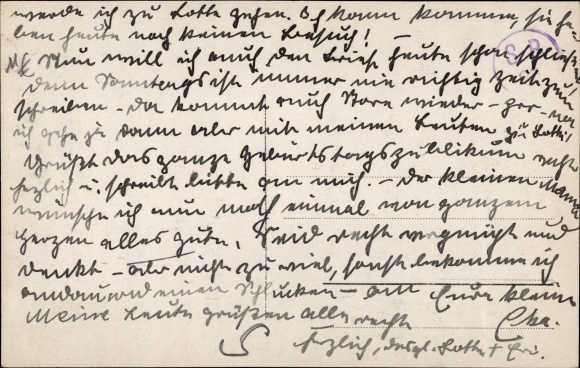 werde ich zu Lotte gehen. Ich kann kommen, sie ha-
ben heute noch keinen Besuch! —
Nun will ich auch den Brief heute schon schließen
denn Sonntags ist immer nie richtig Zeit zum
schreiben - da kommt auch Nora wieder -
ich gehe ja dann aber mit meinen Leuten zu Lotte,
Grüßt das ganze Geburtstagspublikum recht
herzlich u. schreibt bitte an mich. - Der kleinen Mama
wünsche ich nun noch einmal von ganzem
Herzen alles Gute. Seid recht vergnügt und
denkt - aber nicht zu viel, sonst bekomme ich
andauernd einen Schlucken - an Eure kleine
Meine Leute grüßen alle recht
herzlich, desgl. Lotte +